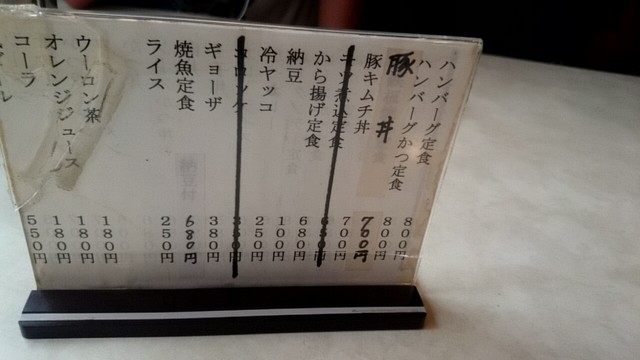 ハンバーグ定食 800円
ハンバーグかつ定食 800円
豚丼 700円
豚キムチ丼 700円
煮込定食
から揚げ定食 680円
納豆 100円
冷ヤッコ 250円
コロッケ
ギョーザ 380円
焼魚定食 680円
ライス 250円
ウーロン茶 180円
オレンジジュース 180円
コーラ 180円
ール 550円